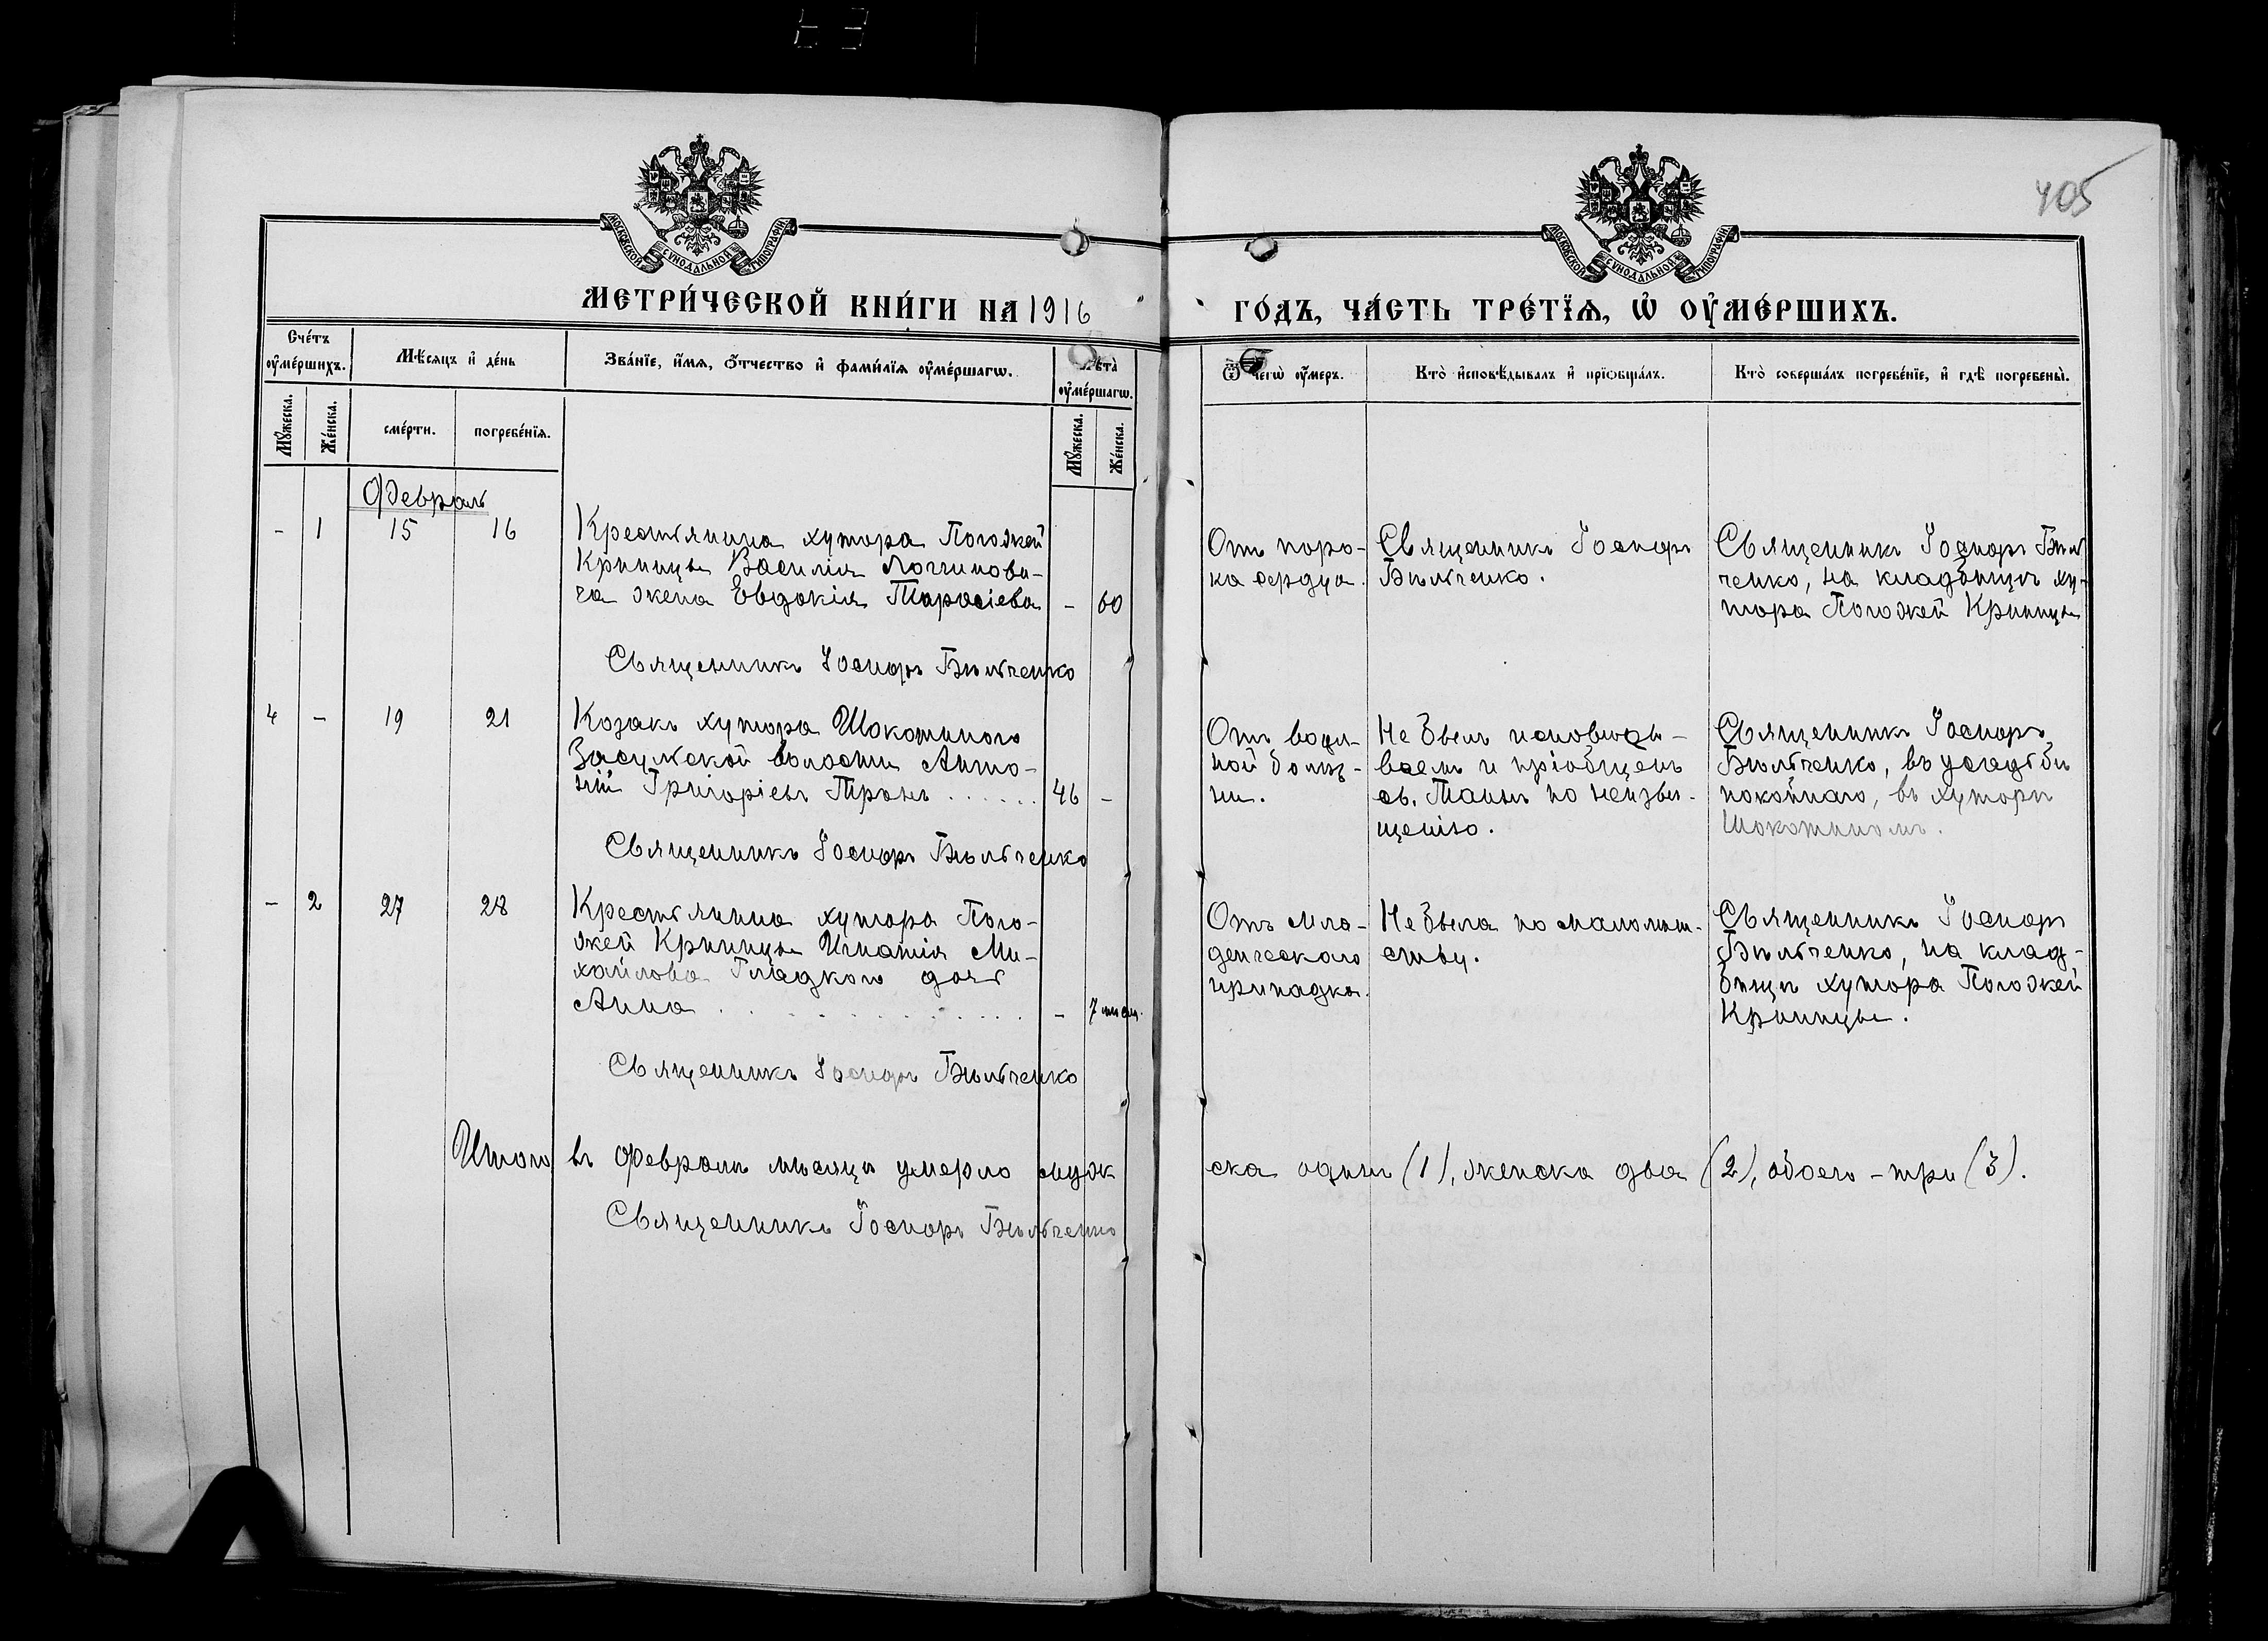 405
МОСКОВСКОЙ СѴНОДАЛЬНОЙ ТИПОГРАФІИ
МОСКОВСКОЙ СѴНОДАЛЬНОЙ ТИПОГРАФІИ
МЕТРИ́ЧЕСКОЙ КНИ́ГИ НА 1916 ГО́ДЪ, ЧА́СТЬ ТРЕ́ТЇѦ, Ѡ҆ ОУ҆МЕ́РШИХЪ.
Сче́тъ оу҆ме́ршихъ.
Мѣ́сяцъ и҆ де́нь
Зва́нїе, и҆́мѧ, ѻ҆́тчество и҆ фами́лїѧ оу҆ме́ршагѡ.
Лѣта̀ оу҆ме́ршагѡ.
Ѿ чегѡ̀ оу҆́меръ.
Кто̀ и҆сповѣ́дывалъ и҆ прїѡбща́лъ.
Кто̀ соверша́лъ погребе́нїе, и҆ гдѣ̀ погребены̀.
Мꙋ́жеска.
Же́нска.
сме́рти.
погребе́нїѧ.
Мꙋ́жеска.
Же́нска.
Февраль
- 1 15 16
Крестьянина хутора Погожей
Криницы Василія Логгинови-
ча жена Евдокія Тарасіева - 60
Отъ поро-
ка сердца.
Священникъ Іосифъ
Бѣльченко.
Священникъ Іосифъ Бѣль
ченко, на кладбищѣ ху-
тора Погожей Криницы
Священникъ Іосифъ Бѣльченко
4 - 19 21
Козакъ хутора Шокотиного
Засульской волости Анто-
ній Григоріевъ Тронь ...... 46 -
Отъ водя-
ной болѣз-
ни.
Не былъ исповѣды-
ваемъ и пріобщенъ
св. Таинъ по неизвѣ-
щенію.
Священникъ Іосифъ
Бѣльченко, въ усадьбѣ
покойнаго, въ хуторѣ
Шокотиномъ.
Священникъ Іосифъ Бѣльченко
- 2 27 28
Крестьянина хутора Пого-
жей Криницы Игнатія Ми-
хайлова Гладкого дочь
Анна . . . . . . . . . . . - 7 мѣсяц.
Отъ мла-
денческого
припадка.
Не была по малолѣт-
ству.
Священникъ Іосифъ
Бѣльченко, на клад-
бищѣ хутора Погожей
Криницы.
Священникъ Іосифъ Бѣльченко
Итого въ февралѣ мѣсяцѣ умерло муж ска одинъ (1), женска два (2), обоего - три (3).
Священникъ Іосифъ Бѣльченко